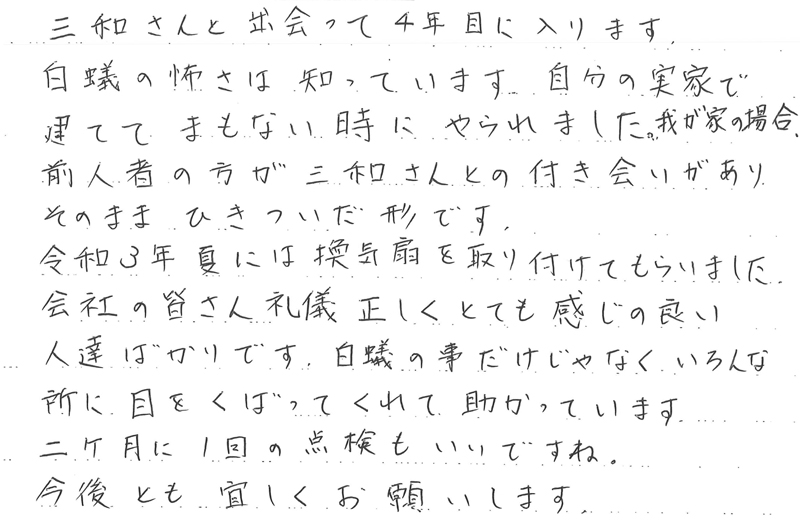 三和さんと出会って4年目に入ります.
白蟻の怖さは知っています 自分の実家で
建てて まもない時に やられました。我が家の場合、
前入者の方が三和さんとの付き会いがあり
そのまま ひきついだ形です.
令和3年夏には換気扇を取り付けてもらいました.
会社の皆さん礼儀正しくとても感じの良い
人達ばかりです. 白蟻の事だけじゃなくいろんな
所に目をくばってくれて助かっています.
二ケ月に1回の点検もいいですね。
今後とも宜しくお願いします.